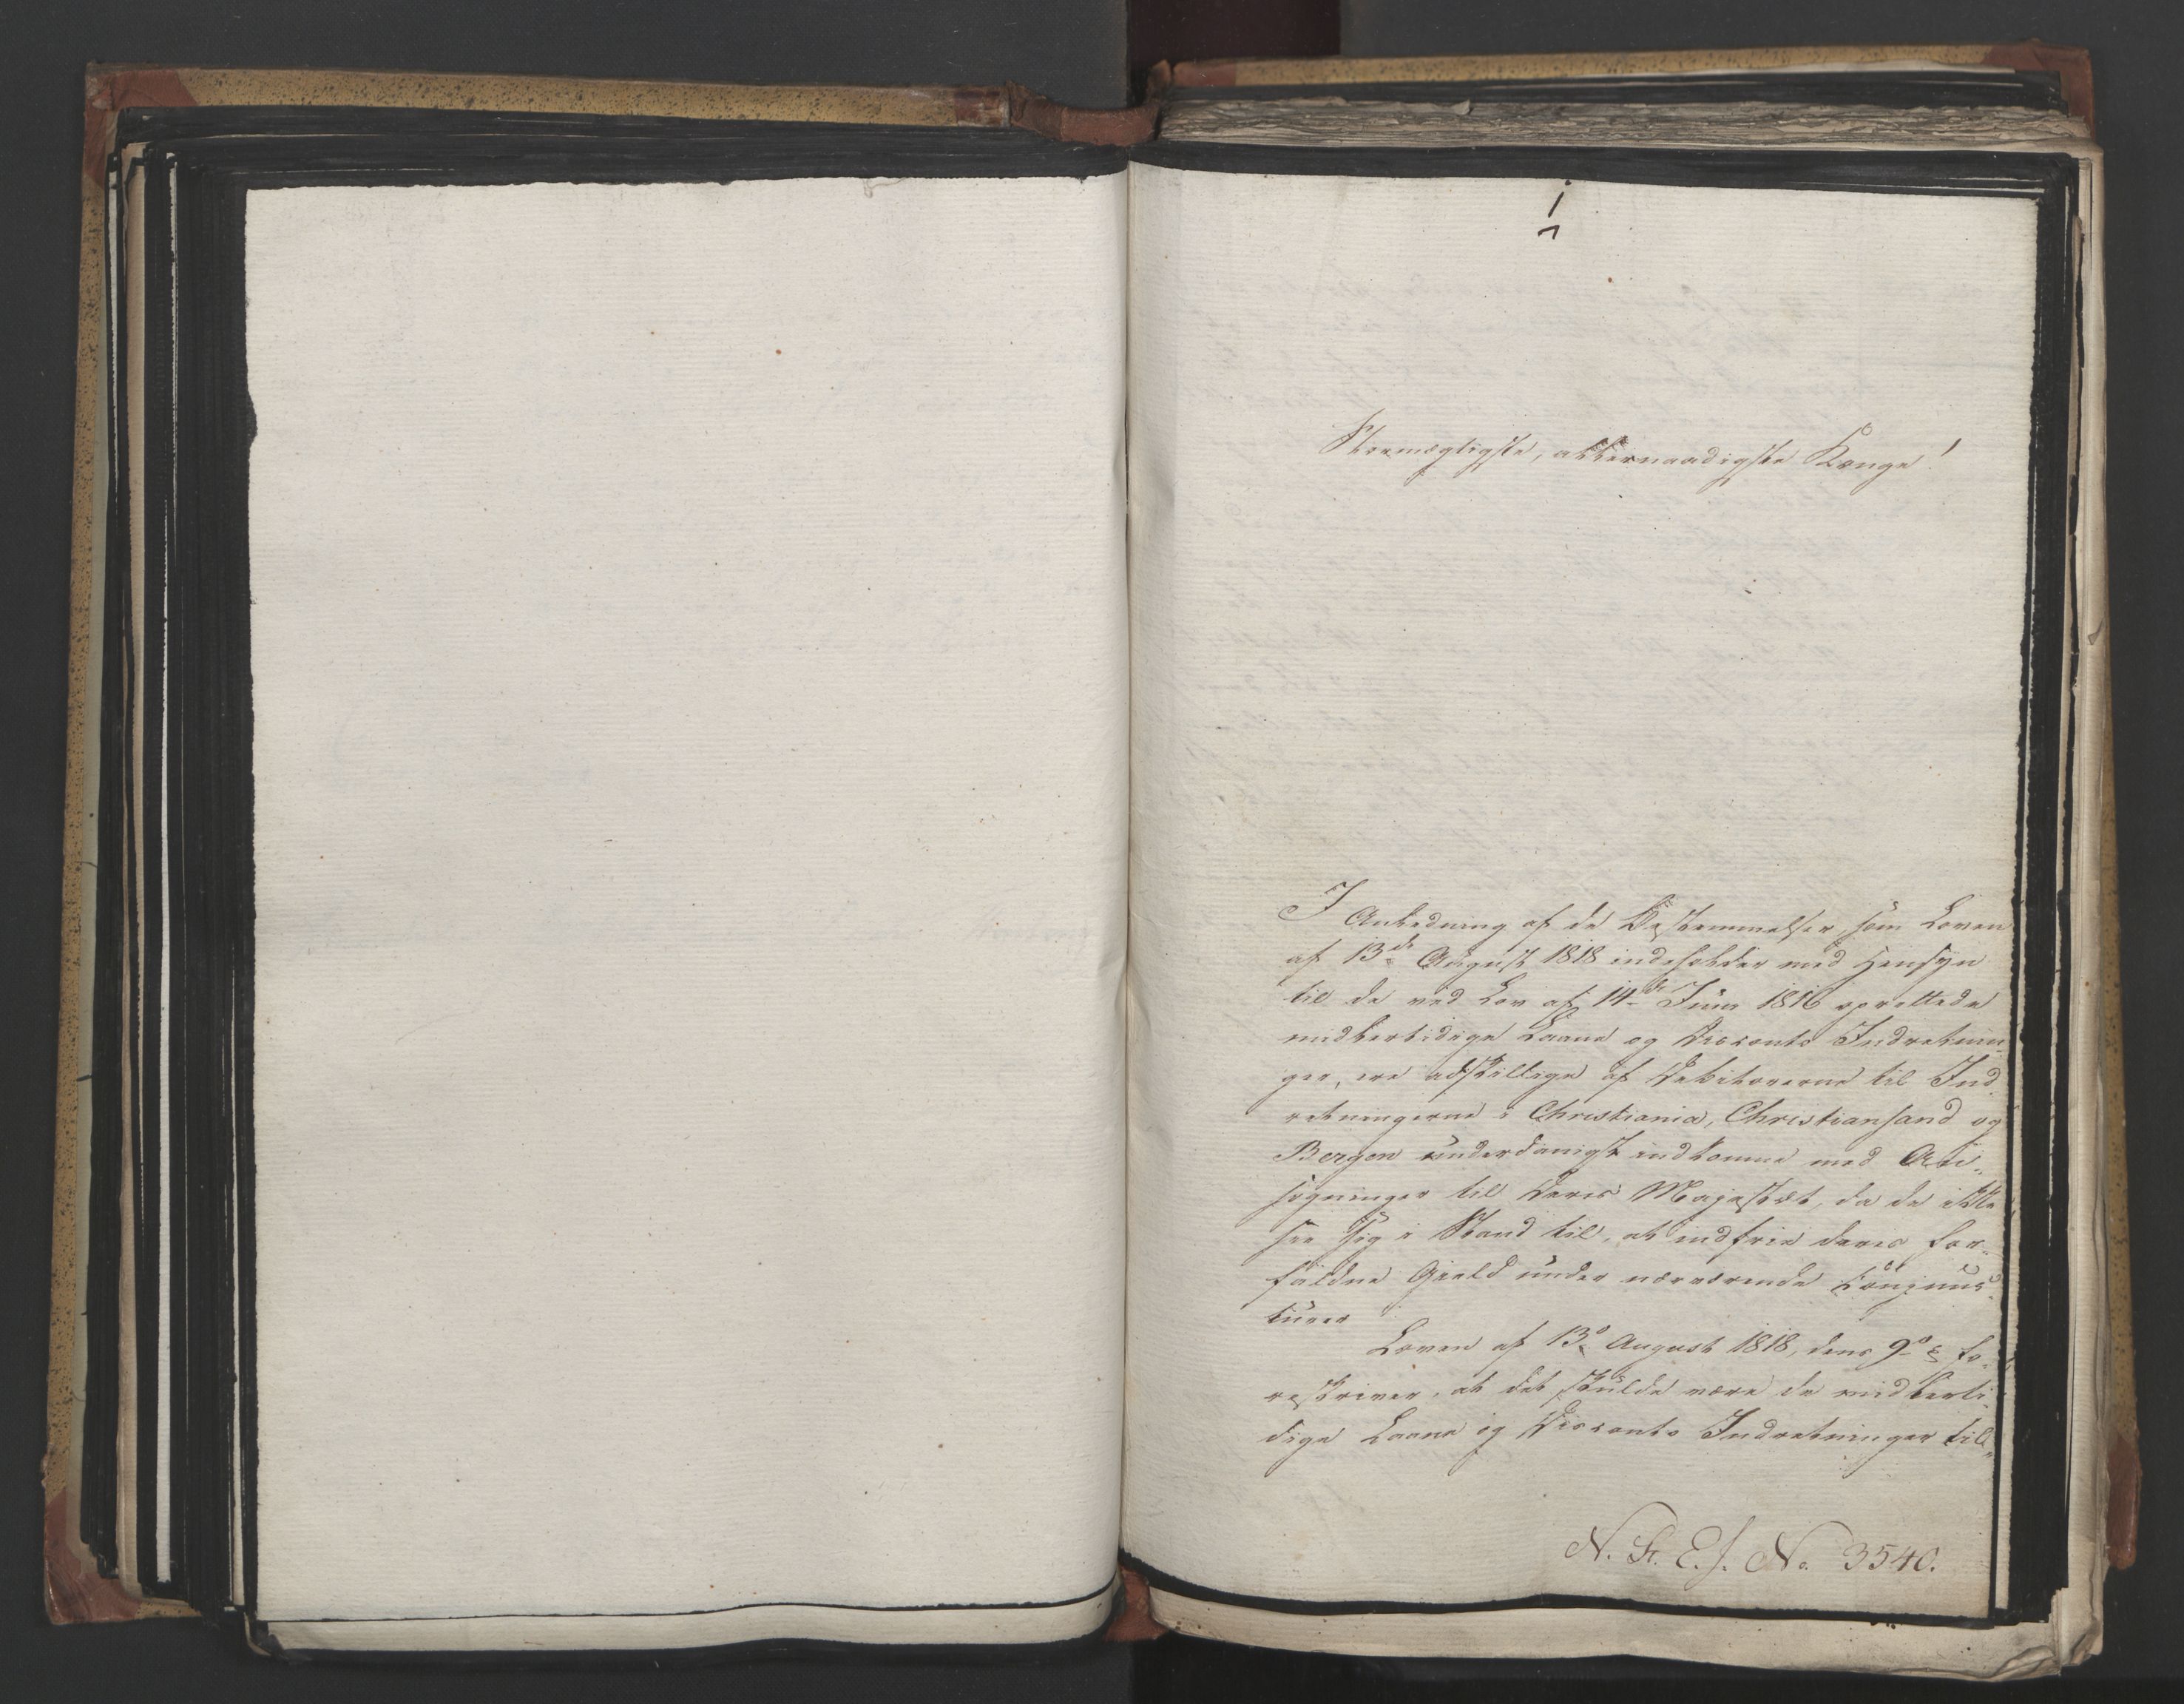 1
Stormægtigste, allernaadigste Konge!
I Anledning af de Bestemmelser, som Loven
af 13de August 1818 indeholder med Hensyn
til de ved Lov af 14de Juni 1816 oprettede
midlertidige Laane og Disconto Indretnin-
ger, ere adskillige af Debitorerne til Ind
retningerne i Christiania, Christiansand og
Bergen underdanigst indkomne med An-
søgninger til Deres Majestæt, da de ikke
see sig i Stand til, at indfrie deres for-
faldne Gjeld under nærværende Conjunc-
turer
Loven af 13de August 1818, dens 9de § fo-
reskriver, at det skulde være de midlerti-
dige Laane og Disconto Indretninger til-
N. St. E. J. No. 3540.